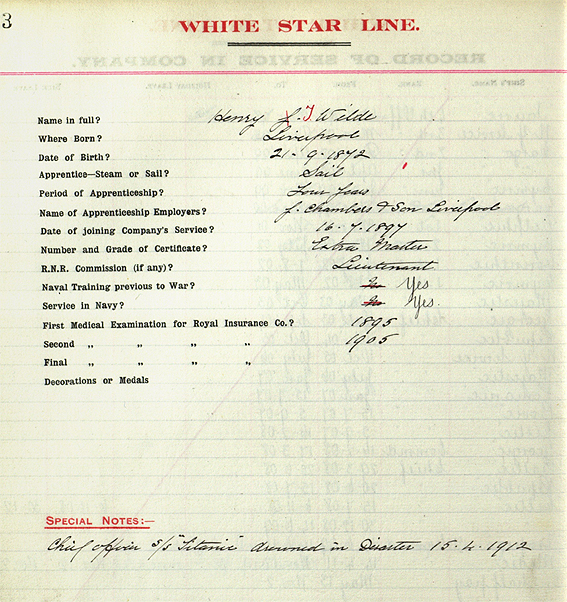 3
WHITE STAR LINE.
RECORD OF SERVICE IN COMPANY.
Name in full? Henry J. T Wilde
Where Born? Liverpool
Date of Birth? 21-9-1872
Apprentice—Steam or Sail? Sail
Period of Apprenticeship? Four Years
Name of Apprenticeship Employers? J. Chambers & Son Liverpool
Date of joining Company's Service? 16.7.1897
Number and Grade of Certificate? Extra Master
R.N.R. Commission (if any)? Lieutenant
Naval Training previous to War? No Yes
Service in Navy? No Yes.
First Medical Examination for Royal Insurance Co.? 1895
Second „ „ „ „ 1905
Final „ „ „ „
Decorations or Medals
SPECIAL NOTES:—
Chief officer s/s "Titanic" drowned in Disaster 15.4.1912